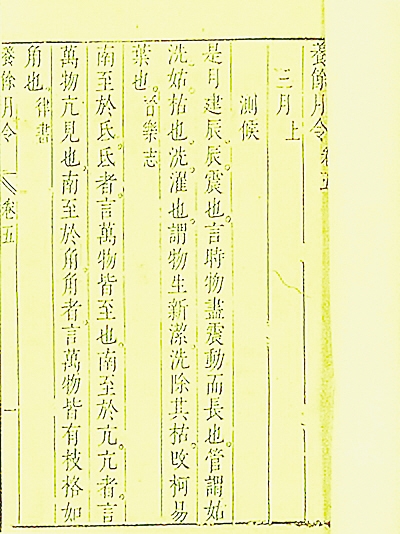 養餘月令卷五
三月上
測候
是月建辰辰震也言時物盡震動而長也管謂姑
洗姑枯也洗濯也謂物生新潔洗除其枯改柯易
葉也晉樂志
南至於氐氐者言萬物皆至也南至於亢亢者言
萬物亢見也南至於角角者言萬物皆有枝格如
角也律書
養餘月令 卷五 一